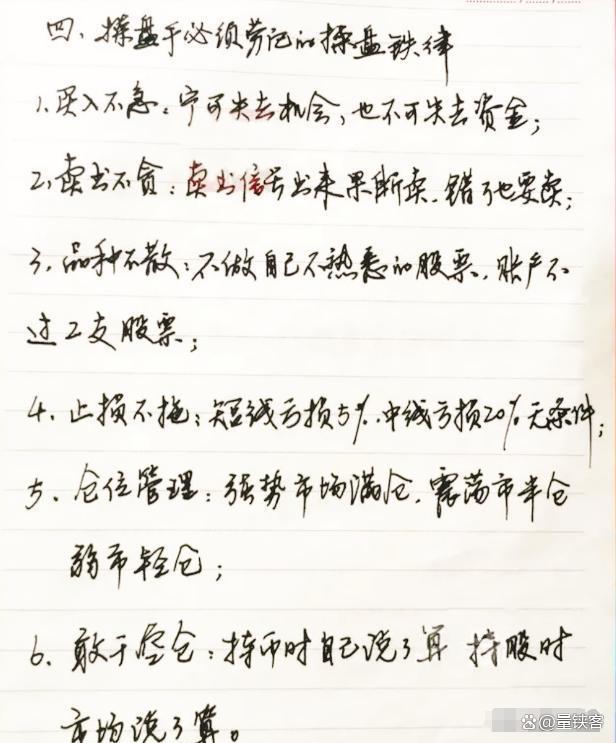 四、操盘手必须劳记的操盘铁律
1、买入不急：宁可失去机会，也不可失去资金；
2、卖出不贪：卖出信号出来果断卖，错了也要卖；
3、品种不散：不做自己不熟悉的股票，账户不
过2支股票；
4、止损不拖：短线亏损5%，中线亏损20%无条件；
5、仓位管理：强势市场满仓，震荡市半仓
弱市轻仓；
6、敢于空仓：持币时自己说了算 持股时
市场说了算。
量铁客